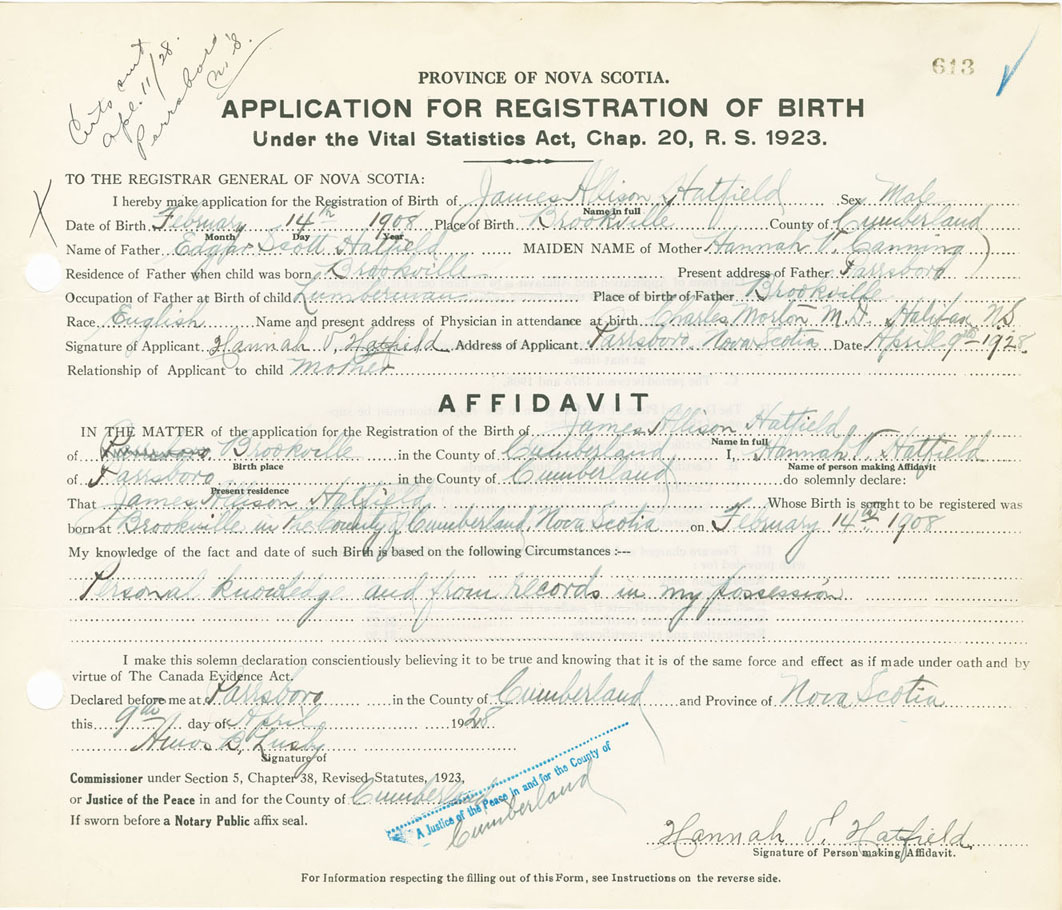 Certs sent
Apl. 11/28.
Parrsboro
N.S.
613
PROVINCE OF NOVA SCOTIA.
APPLICATION FOR REGISTRATION OF BIRTH
Under the Vital Statistics Act, Chap. 20, R. S. 1923.
TO THE REGISTRAR GENERAL OF NOVA SCOTIA:
I hereby make application for the Registration of Birth of James Allison Hatfield Sex Male
Name in full
Date of Birth February 14th 1908 Place of Birth Brookville County of Cumberland
Month Day Year
Name of Father Edgar Scott Hatfield MAIDEN NAME of Mother Hannah V. Canning
Residence of Father when child was born Brookville Present address of Father Parrsboro
Occupation of Father at Birth of child Lumberman Place of birth of Father Brookville
Race English Name and present address of Physician in attendance at birth Charles Morton M.D. Halifax NS
Signature of Applicant Hannah V. Hatfield Address of Applicant Parrsboro, Nova Scotia Date April 9th 1928
Relationship of Applicant to child Mother
AFFIDAVIT
IN THE MATTER of the application for the Registration of the Birth of James Allison Hatfield
Name in full
of Parrsboro Brookville in the County of Cumberland I, Hannah V. Hatfield
Birth place Name of person making Affidavit
of Parrsboro in the County of Cumberland do solemnly declare:
Present residence
That James Allison Hatfield Whose Birth is sought to be registered was
born at Brookville in the County of Cumberland, Nova Scotia on February 14th 1908
My knowledge of the fact and date of such Birth is based on the following Circumstances :---
Personal knowledge and from records in my possession
I make this solemn declaration conscientiously believing it to be true and knowing that it is of the same force and effect as if made under oath and by
virtue of The Canada Evidence Act.
Declared before me at Parrsboro in the County of Cumberland and Province of Nova Scotia
this 9th day of April 1928
Amos B. Lusby
Signature of
Commissioner under Section 5, Chapter 38, Revised Statutes, 1923,
or Justice of the Peace in and for the County of Cumberland
If sworn before a Notary Public affix seal.
A Justice of the Peace in and for the County of
Cumberland
Hannah V. Hatfield
Signature of Person making Affidavit.
For Information respecting the filling out of this Form, see Instructions on the reverse side.